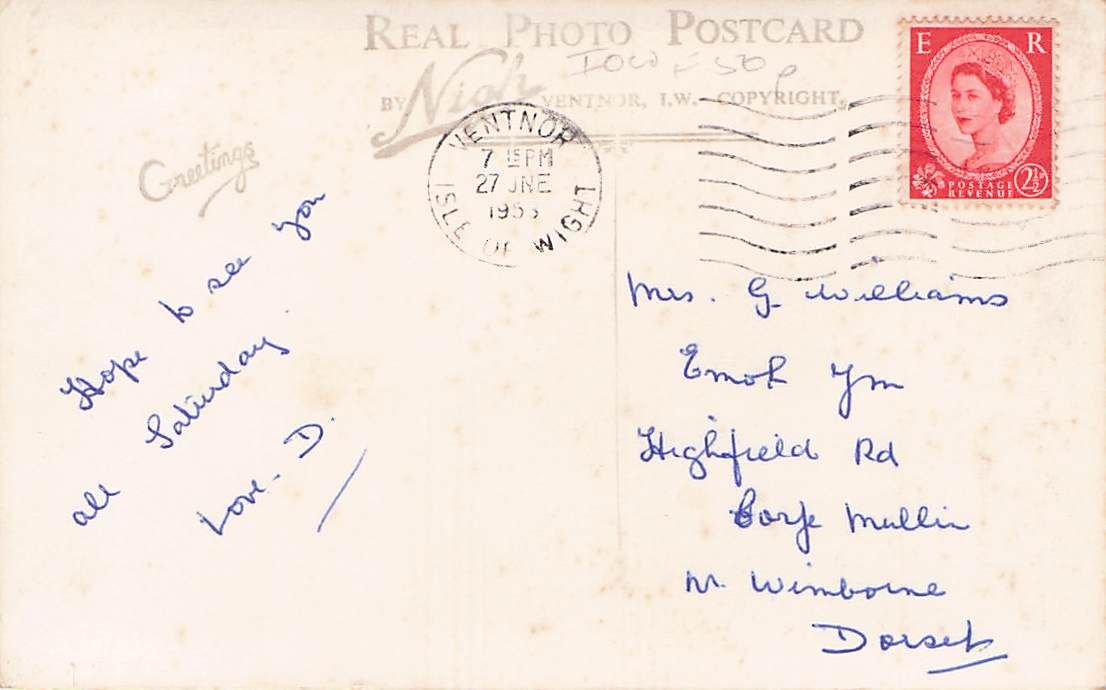 REAL PHOTO POSTCARD
IOW 50p
BY Nigh VENTNOR, I.W. COPYRIGHT.
E R
POSTAGE
REVENUE 2½
VENTNOR
7 15 PM
27 JNE
1953
ISLE OF WIGHT
Greetings
Hope to see you
all Saturday.
Love - D.
Mrs. G Williams
Emoh Ym
Highfield Rd
Corfe Mullin
Nr. Wimborne
Dorset